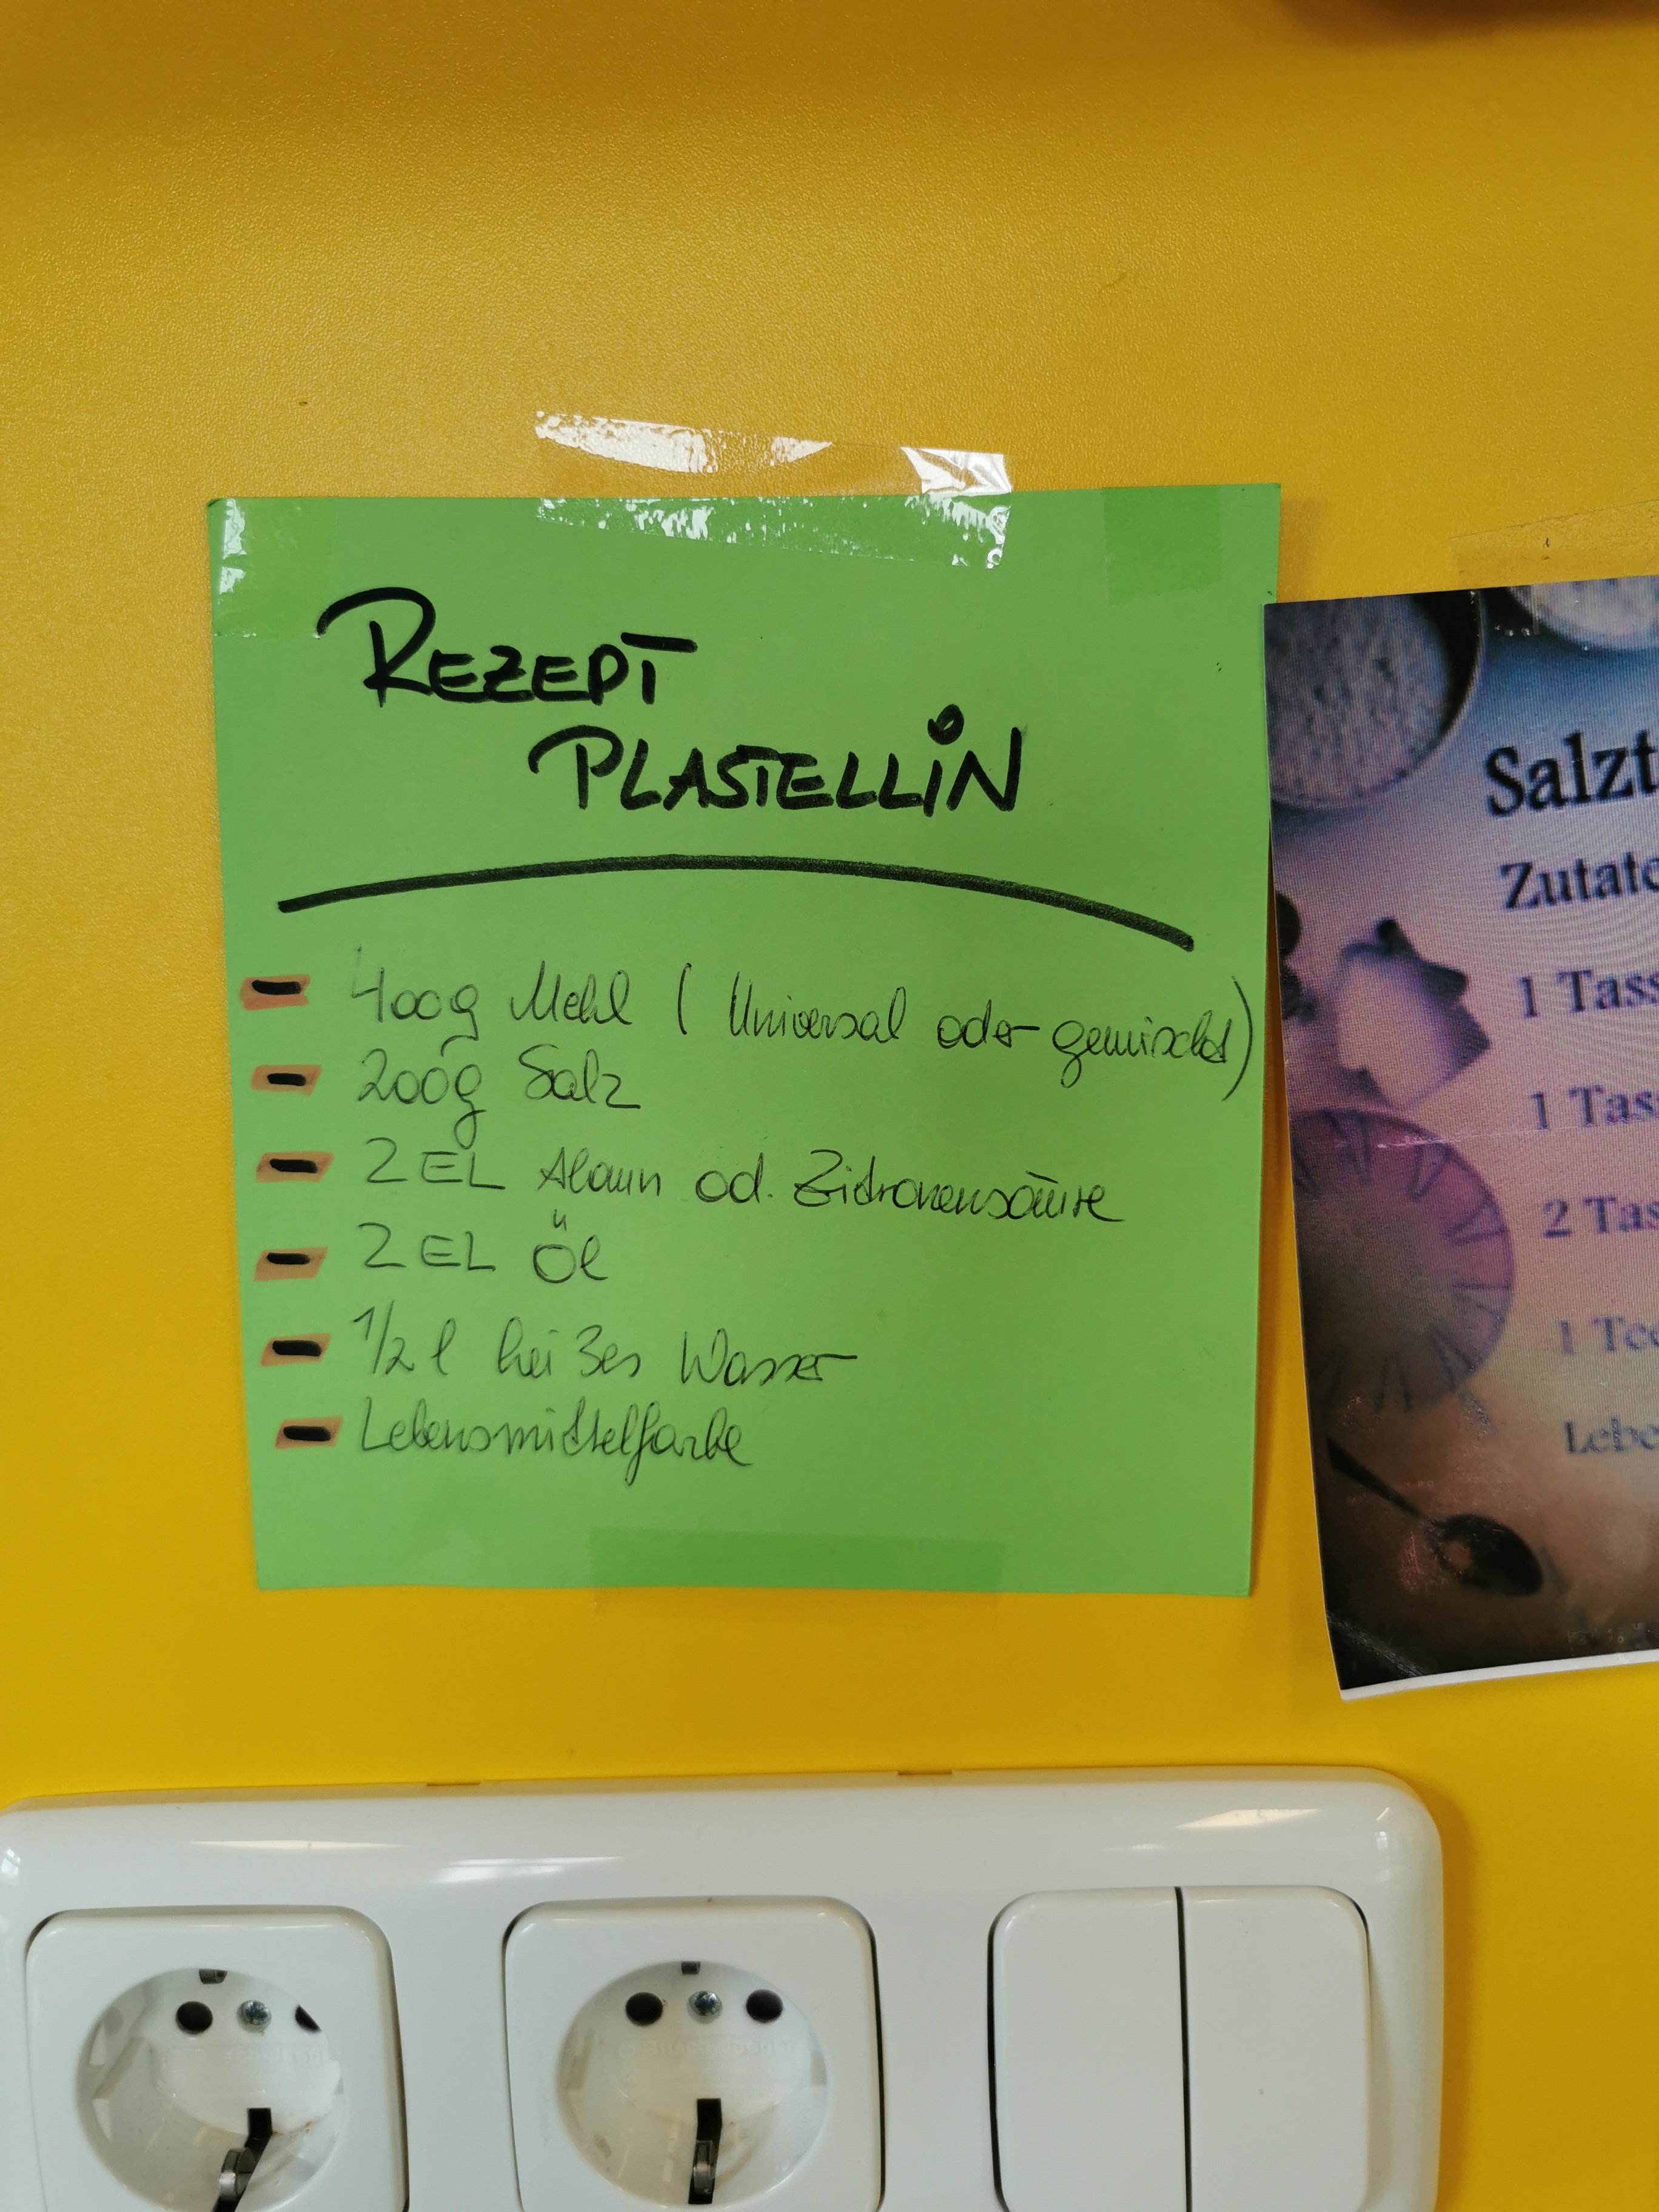 REZEPT
PLASTELLIN
- 400g Mehl (Universal oder gemischt)
- 200g Salz
- 2 EL Alaun od. Zitronensäure
- 2 EL Öl
- 1/2 l heißes Wasser
- Lebensmittelfarbe
Salzt
Zutate
1 Tass
1 Tass
2 Tas
1 Tee
Lebe